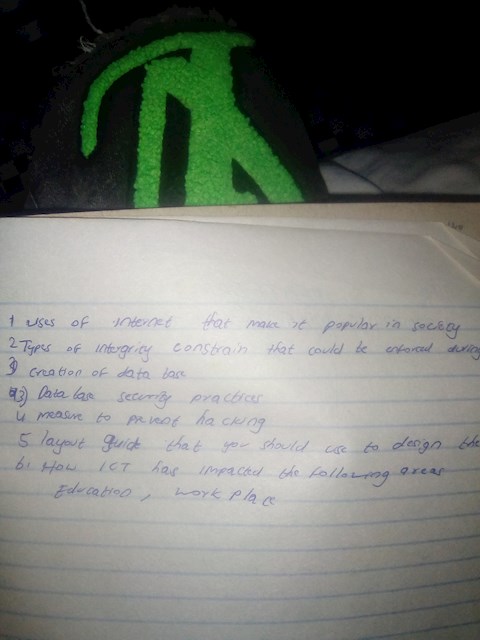 1 uses of internet that make it popular in society
2 Types of intergrity constrain that could be enforced during
3) creation of data base
3) Data base security practices
4 measure to prevent hacking
5 layout guide that you should use to design the
6: How ICT has impacted the following areas
Education, work place